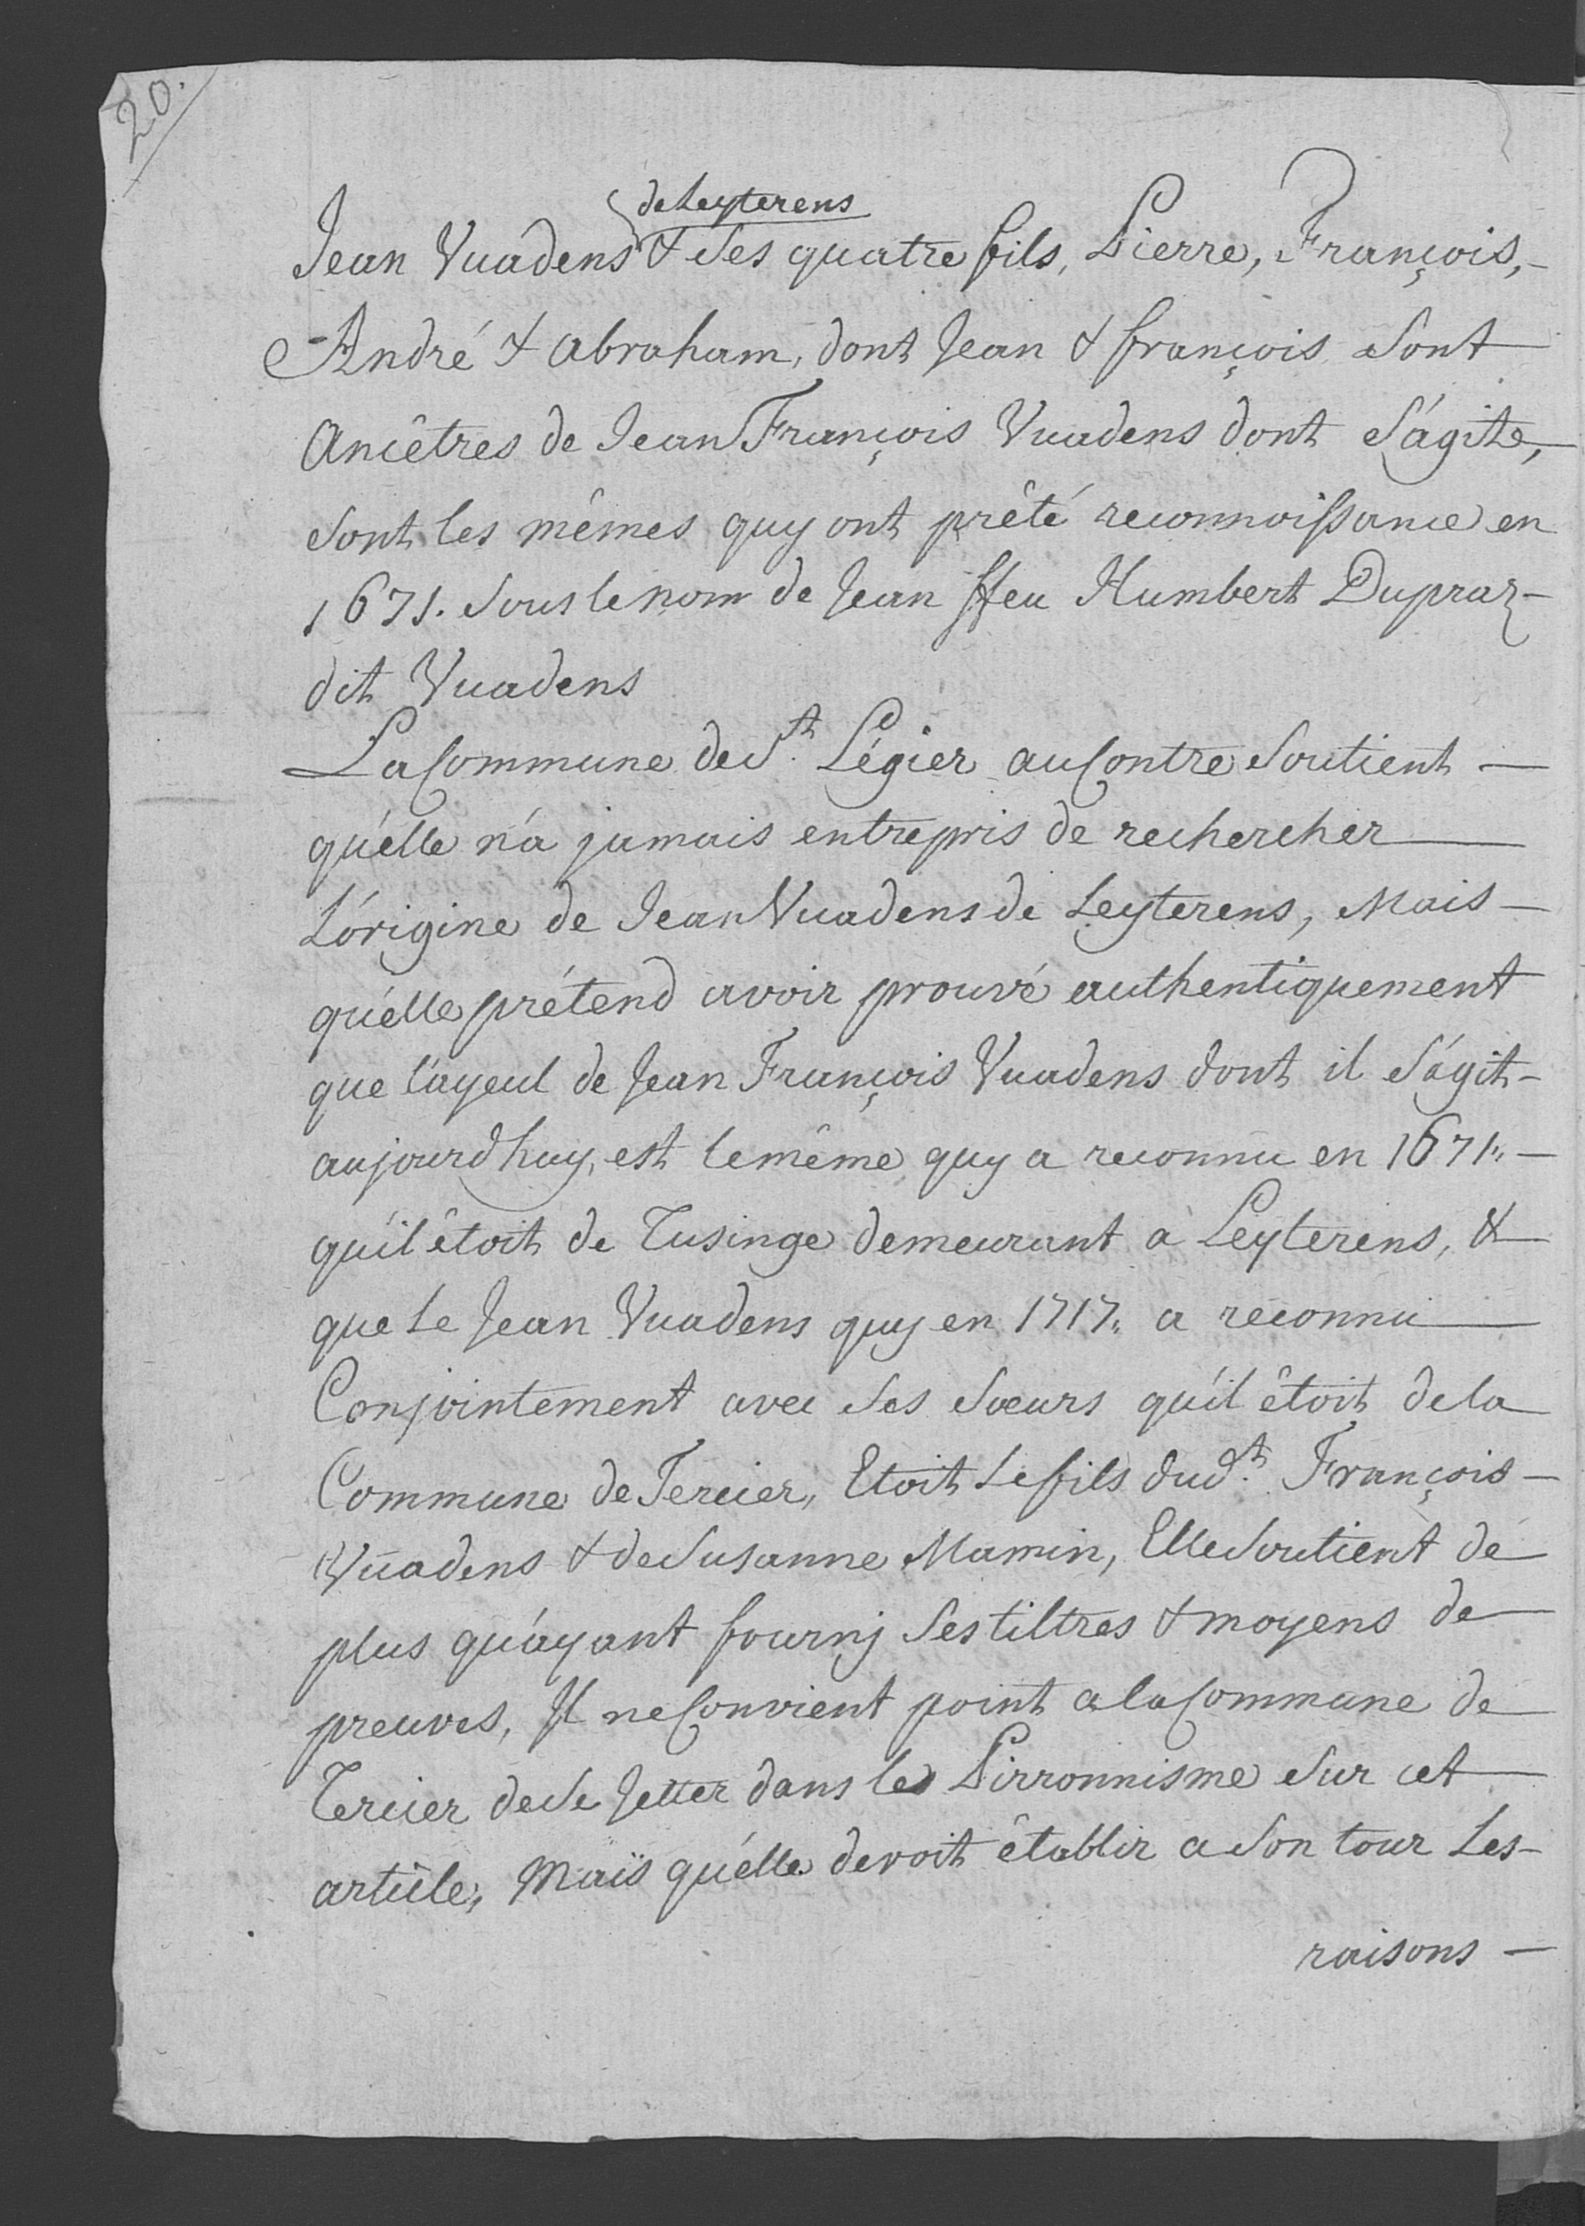 20.
de Leyterens
Jean Vuadens & ses quatre fils, Pierre, François,
André & Abraham, dont Jean & François sont
Ancêtres de Jean François Vuadens dont s'ágite,
sont les mêmes quy ont prêté reconnoissance en
1671. sous le nom de Jean ffeu Humbert Dupraz
dit Vuadens
La Commune de St. Légier au Contre soutient
qu'élle n'a jamais entrepris de rechercher
L'órigine de Jean Vuadens de Leyterens, Mais
qu'élle prétend avoir prouvé authentiquement
que l'ayeul de Jean François Vuadens dont il s'ágit
aujourdhuy, est le même quy a reconnu en 1671.
qu'il êtoit de Tusinge demeurant à Leyterens, &
que le Jean Vuadens quy en 1717. a reconnu
Conjointement avec ses sœurs qu'il êtoit de la
Commune de Tercier, Etoit le fils dudt. François
Vuadens & de Susanne Mamin, Elle soutient de
plus qu'áyant fournj ses tiltres & moyens de
preuves, Il ne Convient point a la Commune de
Tercier de se Jetter dans le Pirronnisme sur cet
article, Mais qu'élle devoit êtablir a son tour Les
raisons